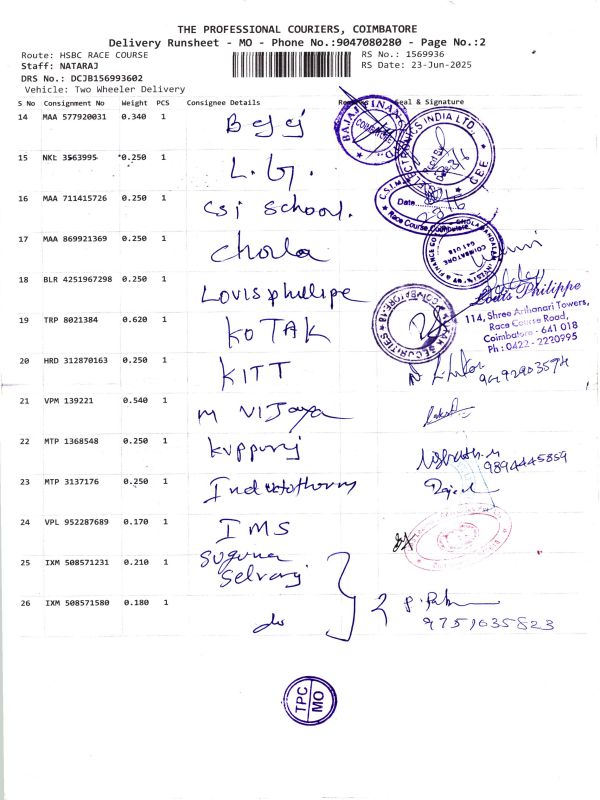 THE PROFESSIONAL COURIERS, COIMBATORE
Delivery Runsheet - MO - Phone No.:9047080280 - Page No.:2
Route: HSBC RACE COURSE RS No.: 1569936
Staff: NATARAJ RS Date: 23-Jun-2025
DRS No.: DCJB156993602
Vehicle: Two Wheeler Delivery
S No Consignment No Weight PCS Consignee Details Seal & Signature
14 MAA 577920031 0.340 1 Bajaj
15 NKL 3563995 0.250 1 L.G.
16 MAA 711415726 0.250 1 CSI School.
17 MAA 869921369 0.250 1 Chola
18 BLR 4251967298 0.250 1 Louis phillipe
19 TRP 8021384 0.620 1 KOTAK
20 HRD 312870163 0.250 1 KITT
21 VPM 139221 0.540 1 M VIJaya
22 MTP 1368548 0.250 1 Kuppuraj
23 MTP 3137176 0.250 1
24 VPL 952287689 0.170 1 IMS
25 IXM 508571231 0.210 1 Suguna
Selvaraj
26 IXM 508571580 0.180 1 do
BAJAJ FINANCE
ELECTRONICS INDIA LTD.
C.S.I. MA
Date
Race Course, Coimbatore
COIMBATORE
641 018
Louis Philippe
114, Shree Arihanari Towers,
Race Course Road,
Coimbatore - 641 018
Ph : 0422 - 2220995
SECURITIES
COIMBATORE-18
9492903594
9894445859
9751035823
TPC
MO